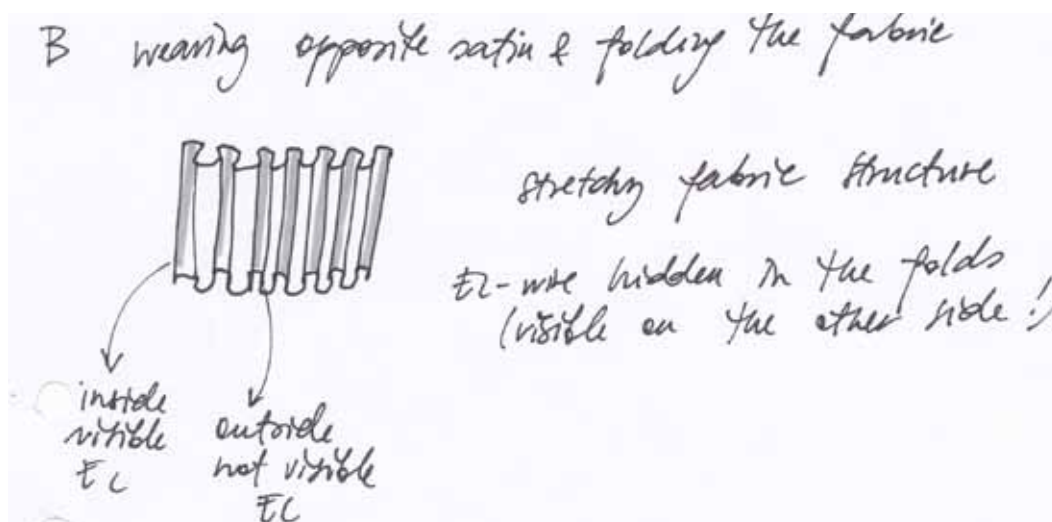 B weaving opposite satin & folding the fabric
stretchy fabric structure
EL-wire hidden in the folds
(visible on the other side!)
inside
visible
EL
outside
not visible
EL